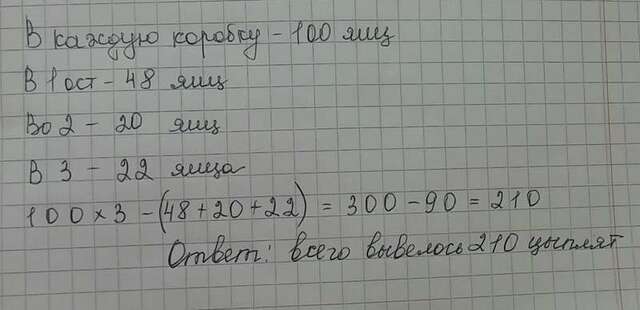 В каждую коробку - 100 яиц
В 1 ост - 48 яиц
Во 2 - 20 яиц
В 3 - 22 яйца
100 × 3 - (48 + 20 + 22) = 300 - 90 = 210
Ответ: всего вывелось 210 цыплят